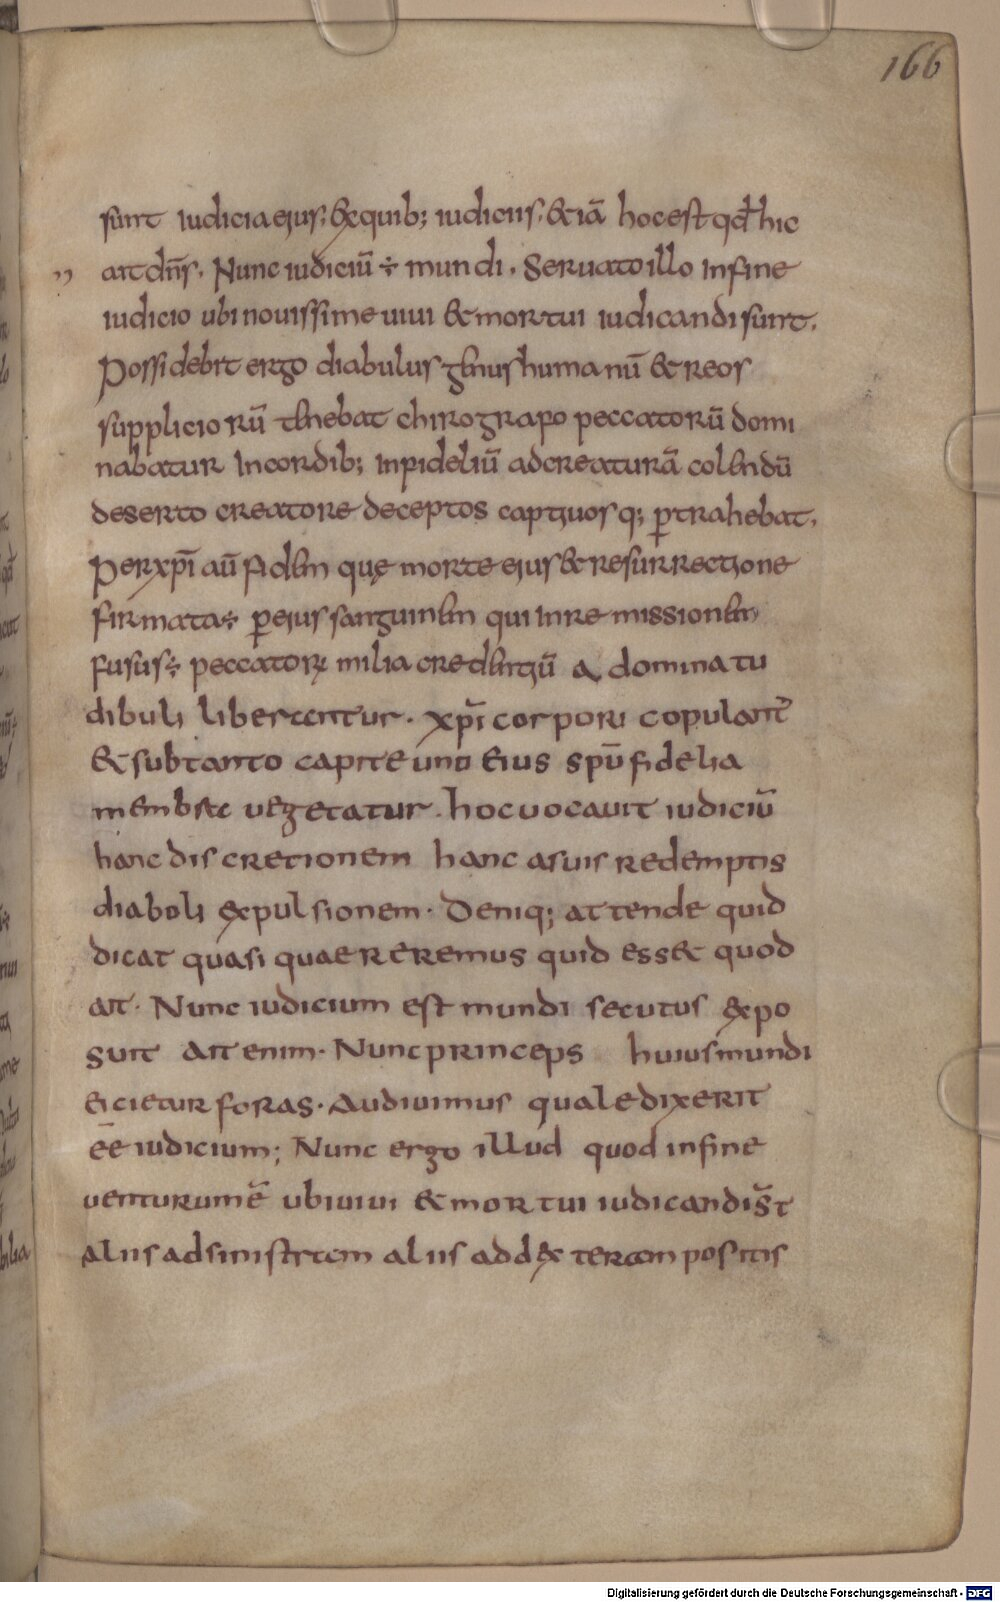 166
sunt iudicia eius; & exquib; iudiciis; & iā hoc est qđ hic
ait dn̄s. Nunc iudiciū ÷ mundi. Seruato illo in fine
iudicio ubi nouissime uiui & mortui iudicandi sunt.
Possidebit ergo diabulus genus humanū & reos
supplicio rū tenebat chirograpo peccatorū domi
nabatur in cordib; inpideliū ad creaturā colendū
deserto creatore deceptos captiuosq; ꝑtrahebat.
Per xp̄i aū fidem quę morte eius & resurrectione
firmata ÷ ꝑ eius sanguinem qui in remissionem
fusus ÷ peccatorꝝ milia credentiū a dominatu
dibuli liberantur. xp̄i corpori copulant᷒
& sub tanto capite uno eius spū fidelia
membra uegetatur. hoc uocauit iudiciū
hanc discretionem hanc a suis redemptis
diaboli expulsionem. Deniq; attende quid
dicat quasi quaereremus quid ess& quod
ait. Nunc iudicium est mundi secutus expo
suit ait enim. Nunc princeps huius mundi
eicietur foras. Audiuimus quale dixerit
ēe iudicium; Nunc ergo illud quod in fine
uenturum ē ubi uiui & mortui iudicandi s̄t
aliis ad sinistram aliis ad dexteram positis
Digitalisierung gefördert durch die Deutsche Forschungsgemeinschaft - DFG